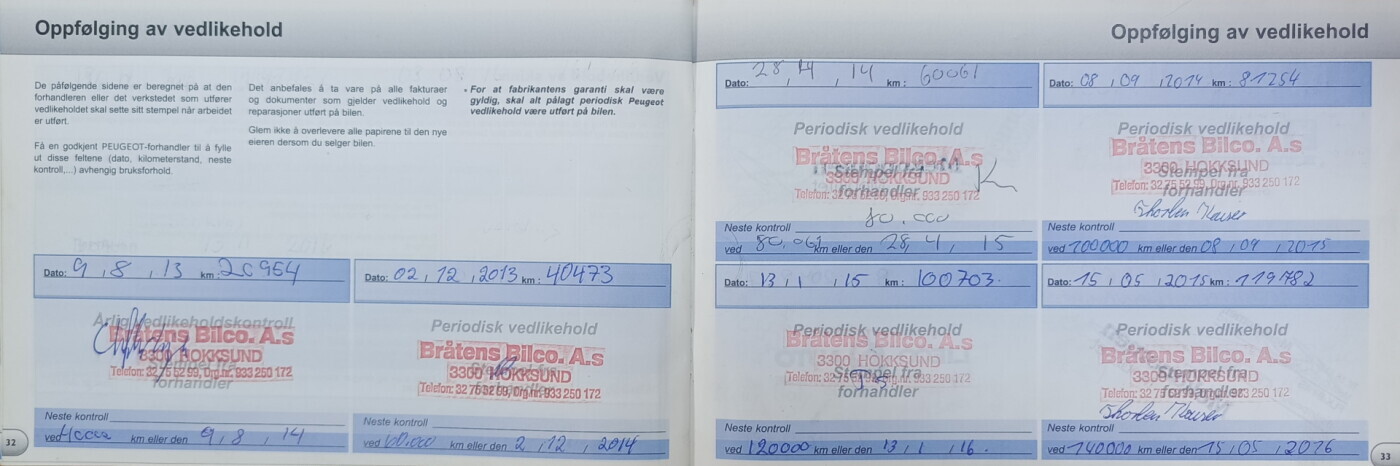 Oppfølging av vedlikehold
De påfølgende sidene er beregnet på at den
forhandleren eller det verkstedet som utfører
vedlikeholdet skal sette sitt stempel når arbeidet
er utført.
Få en godkjent PEUGEOT-forhandler til å fylle
ut disse feltene (dato, kilometerstand, neste
kontroll,...) avhengig bruksforhold.
Det anbefales å ta vare på alle fakturaer
og dokumenter som gjelder vedlikehold og
reparasjoner utført på bilen.
Glem ikke å overlevere alle papirene til den nye
eieren dersom du selger bilen.
• For at fabrikantens garanti skal være
gyldig, skal alt pålagt periodisk Peugeot
vedlikehold være utført på bilen.
Dato: 9,8,13 km: 20954
Årlig vedlikeholdskontroll
Bråtens Bilco. A.s
3300 HOKKSUND
Telefon: 32 75 52 99, Org.nr. 933 250 172
Stempel fra
forhandler
Neste kontroll
ved km eller den 9,8,14
Dato: 02,12,2013 km: 40473
Periodisk vedlikehold
Bråtens Bilco. A.s
3300 HOKKSUND
Telefon: 32 75 52 99, Org.nr. 933 250 172
Stempel fra
forhandler
Neste kontroll
ved 60.000 km eller den 2,12,2014
32
Oppfølging av vedlikehold
Dato: 28,4,14 km: 60061
Periodisk vedlikehold
Bråtens Bilco. A.s
3300 HOKKSUND
Telefon: 32 75 52 99, Org.nr. 933 250 172
Stempel fra
forhandler
80.000
Neste kontroll
ved 80.061 km eller den 28,4,15
Dato: 08,09,2014 km: 81254
Periodisk vedlikehold
Bråtens Bilco. A.s
3300 HOKKSUND
Telefon: 32 75 52 99, Org.nr. 933 250 172
Stempel fra
forhandler
Neste kontroll
ved 100000 km eller den 08,09,2015
Dato: 13,1,15 km: 100703
Periodisk vedlikehold
Bråtens Bilco. A.s
3300 HOKKSUND
Telefon: 32 75 52 99, Org.nr. 933 250 172
Stempel fra
forhandler
Neste kontroll
ved 120000 km eller den 13,1,16.
Dato: 15,05,2015 km: 119782
Periodisk vedlikehold
Bråtens Bilco. A.s
3300 HOKKSUND
Telefon: 32 75 52 99, Org.nr. 933 250 172
Stempel fra
forhandler
Neste kontroll
ved 140000 km eller den 15,05,2016
33